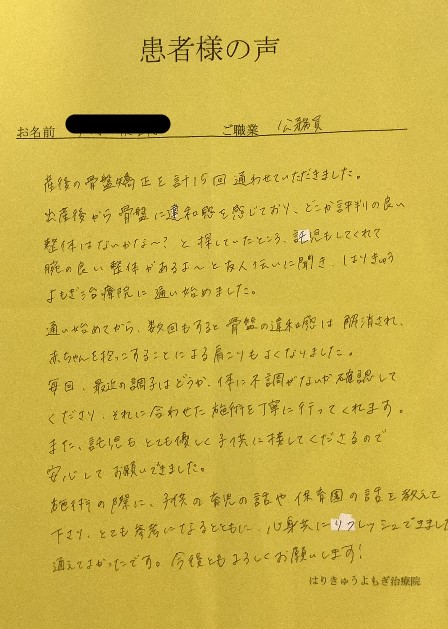 患者様の声
お名前 ご職業 公務員
産後の骨盤矯正を計15回通わせていただきました。
出産後から骨盤に違和感を感じており、どこか評判の良い
整体はないかな〜?と探していたところ、託児もしてくれて
腕の良い整体があるよ〜と友人伝いに聞き、はりきゅう
よもぎ治療院に通い始めました。
通い始めてから、数回もすると骨盤の違和感は解消され、
赤ちゃんを抱っこすることによる肩こりもよくなりました。
毎回、最近の調子はどうか、体に不調がないか確認して
くださり、それに合わせた施術を丁寧に行ってくれます。
また、託児もとても優しく子供に接してくださるので
安心してお願いできました。
施術の際に、子供の育児の話や保育園の話を教えて
下さり、とても参考になるとともに、心身共にリフレッシュできました
通えてよかったです。今後ともよろしくお願いします!
はりきゅうよもぎ治療院